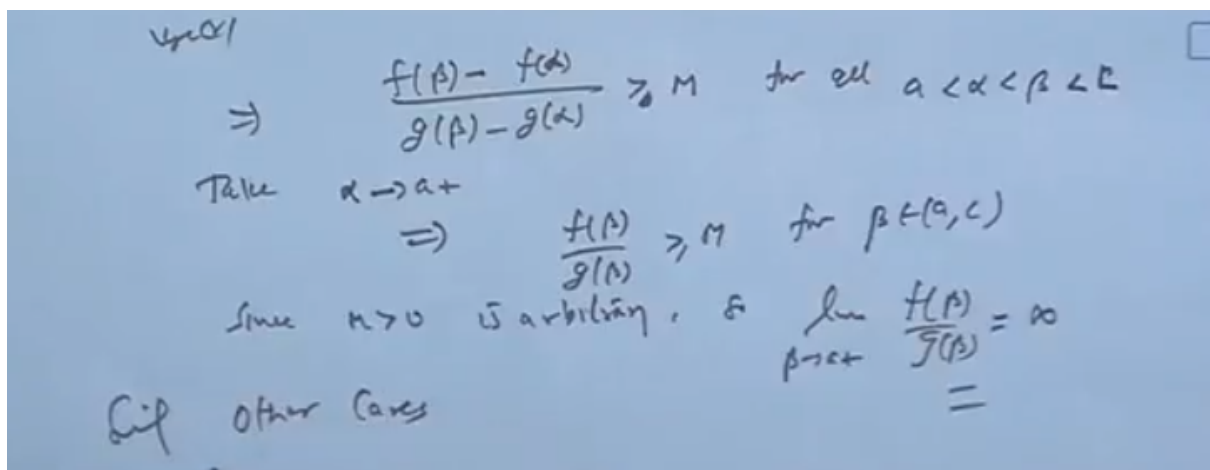 ⇒ f(β) - f(α) / g(β) - g(α) ≥ M for all a < α < β < c
Take α → a+
⇒ f(β) / g(β) ≥ M for β ∈ (a, c)
Since M > 0 is arbitrary, lim β→a+ f(β) / g(β) = ∞
Other Cases